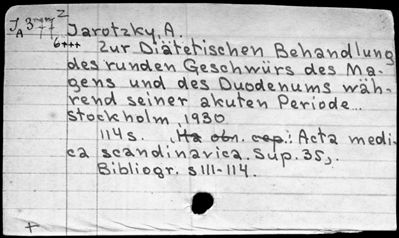 Jarotzky, A.
Zur Diätetischen Behandlung
des runden Geschwürs des Ma-
gens und des Duodenums wäh-
rend seiner akuten Periode...
Stockholm, 1930
114 s. На обл. сер.: Acta medi-
ca scandinavica. Sup. 35,.
Bibliogr. s 111-114.